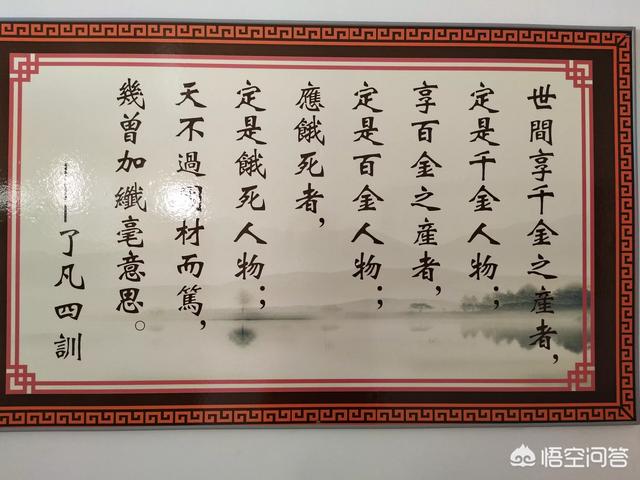 世間享千金之產者，
定是千金人物；
享百金之產者，
定是百金人物；
應餓死者，
定是餓死人物；
天不過因材而篤，
幾曾加纖毫意思。
——了凡四訓
悟空问答